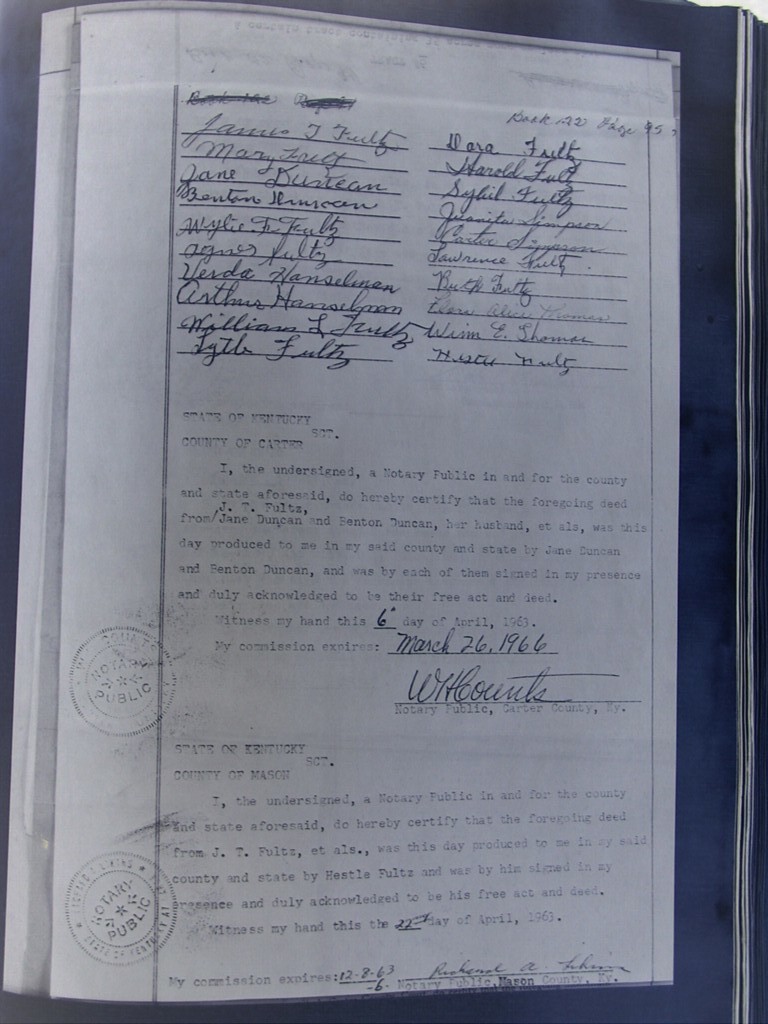 Book 122 Page 95
James T Fultz
Mary Fultz
Jane Duncan
Benton Duncan
Wylie F. Fultz
Agnes Fultz
Verda Hanselman
Arthur Hanselman
William L Fultz
Lytle Fultz
Dora Fultz
Harold Fultz
Sybil Fultz
Juanita Simpson
Carter Simpson
Lawrence Fultz
Ruth Fultz
Alice Thomas
Winn E. Thomas
Fultz
STATE OF KENTUCKY
SCT.
COUNTY OF CARTER
I, the undersigned, a Notary Public in and for the county
and state aforesaid, do hereby certify that the foregoing deed
J. T. Fultz,
from/Jane Duncan and Benton Duncan, her husband, et als, was this
day produced to me in my said county and state by Jane Duncan
and Benton Duncan, and was by each of them signed in my presence
and duly acknowledged to be their free act and deed.
Witness my hand this 6" day of April, 1963.
My commission expires: March 26, 1966
WH Counts
Notary Public, Carter County, Ky.
COUNTS
NOTARY
PUBLIC
STATE OF KENTUCKY
SCT.
COUNTY OF MASON
I, the undersigned, a Notary Public in and for the county
and state aforesaid, do hereby certify that the foregoing deed
from J. T. Fultz, et als., was this day produced to me in my said
county and state by Hestle Fultz and was by him signed in my
presence and duly acknowledged to be his free act and deed.
Witness my hand this the 22nd day of April, 1963.
NOTARY
PUBLIC
STATE OF KENTUCKY AT
My commission expires: 12-8-63
Richard A.
-6- Notary Public, Mason County, Ky.